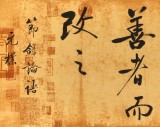 善者而
改之
節錄論語